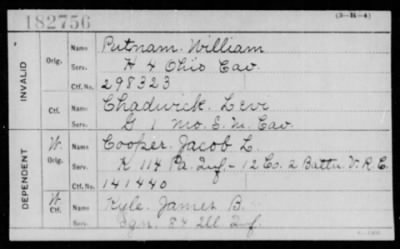 182756
(3-21-4)
INVALID
Orig.
Name Putnam. William
Serv. H 4 Ohio Cav.
Ctf. No. 298323
Ctf.
Name Chadwick. Levi
Serv. G 1 Mo. S. M. Cav
DEPENDENT
W. Orig.
Name Cooper. Jacob L.
Serv. K 114 Pa. Inf - 12 Co. 2 Battn. V. R. C.
Ctf. No. 141440
W Ctf.
Name Kyle. James B.
Serv. 84 Ill Inf.